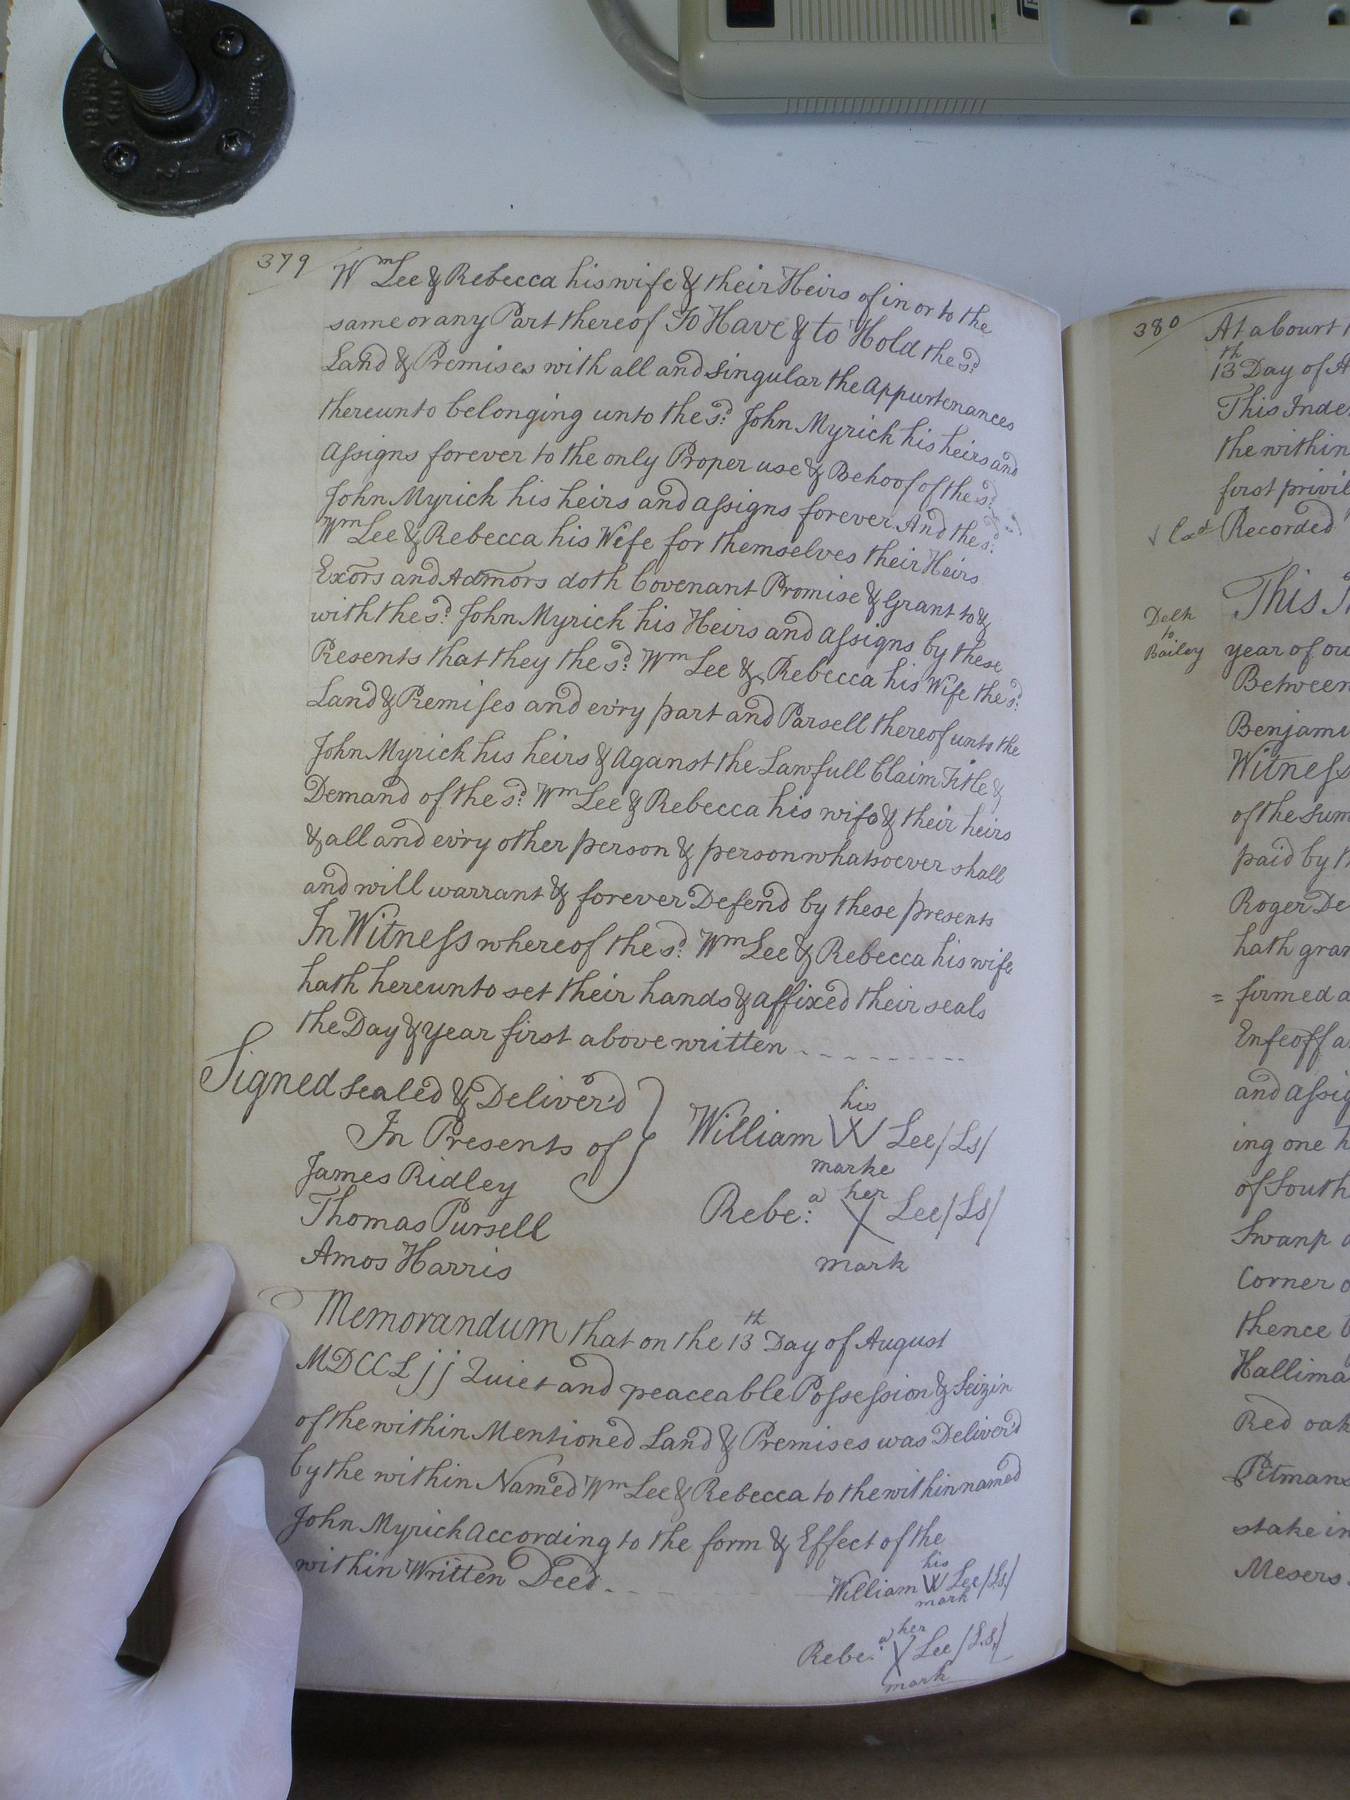 379
Wm Lee & Rebecca his wife & their Heirs of in or to the
same or any Part thereof To Have & to Hold the sd.
Land & Premises with all and singular the Appurtenances
thereunto belonging unto the sd. John Myrick his heirs and
assigns forever to the only Proper use & Behoof of the sd.
John Myrick his heirs and assigns forever And the sd.
Wm Lee & Rebecca his Wife for themselves their Heirs
Exors and Admors doth Covenant Promise & Grant to &
with the sd. John Myrick his Heirs and assigns by these
Presents that they the sd. Wm Lee & Rebecca his Wife the sd.
Land & Premises and ev'ry part and Parsell thereof unto the
John Myrick his heirs & Aganst the Lawfull Claim Title &
Demand of the sd. Wm Lee & Rebecca his wife & their heirs
& all and ev'ry other person & person whatsoever shall
and will warrant & forever Defend by these presents
In Witness whereof the sd. Wm Lee & Rebecca his wife
hath hereunto set their hands & affixed their seals
the Day & year first above written
Signed sealed & Deliver'd
In Presents of
James Ridley
Thomas Pursell
Amos Harris
his
William W Lee /Ls/
marke
Rebe:a her X Lee /Ls/
mark
Memorandum that on the 13th Day of August
MDCCLjj Quiet and peaceable Possession & Seizin
of the within Mentioned Land & Premises was Deliver'd
by the within Named Wm Lee & Rebecca to the within named
John Myrick According to the form & Effect of the
within Written Deed
his
William W Lee /Ls/
mark
Rebe:a her X Lee /L.S./
mark
380
At a Court
13th Day of A
This Inde
the within
first privil
Recorded
Delk
to
Bailey
This In
year of ou
Between
Benjami
Witness
of the sum
paid by th
Roger De
hath gran
= firmed a
Enfeoff a
and assig
ing one h
of South
Swanp a
Corner o
thence
Hallima
Red oak
Pitmans
stake in
Mesers